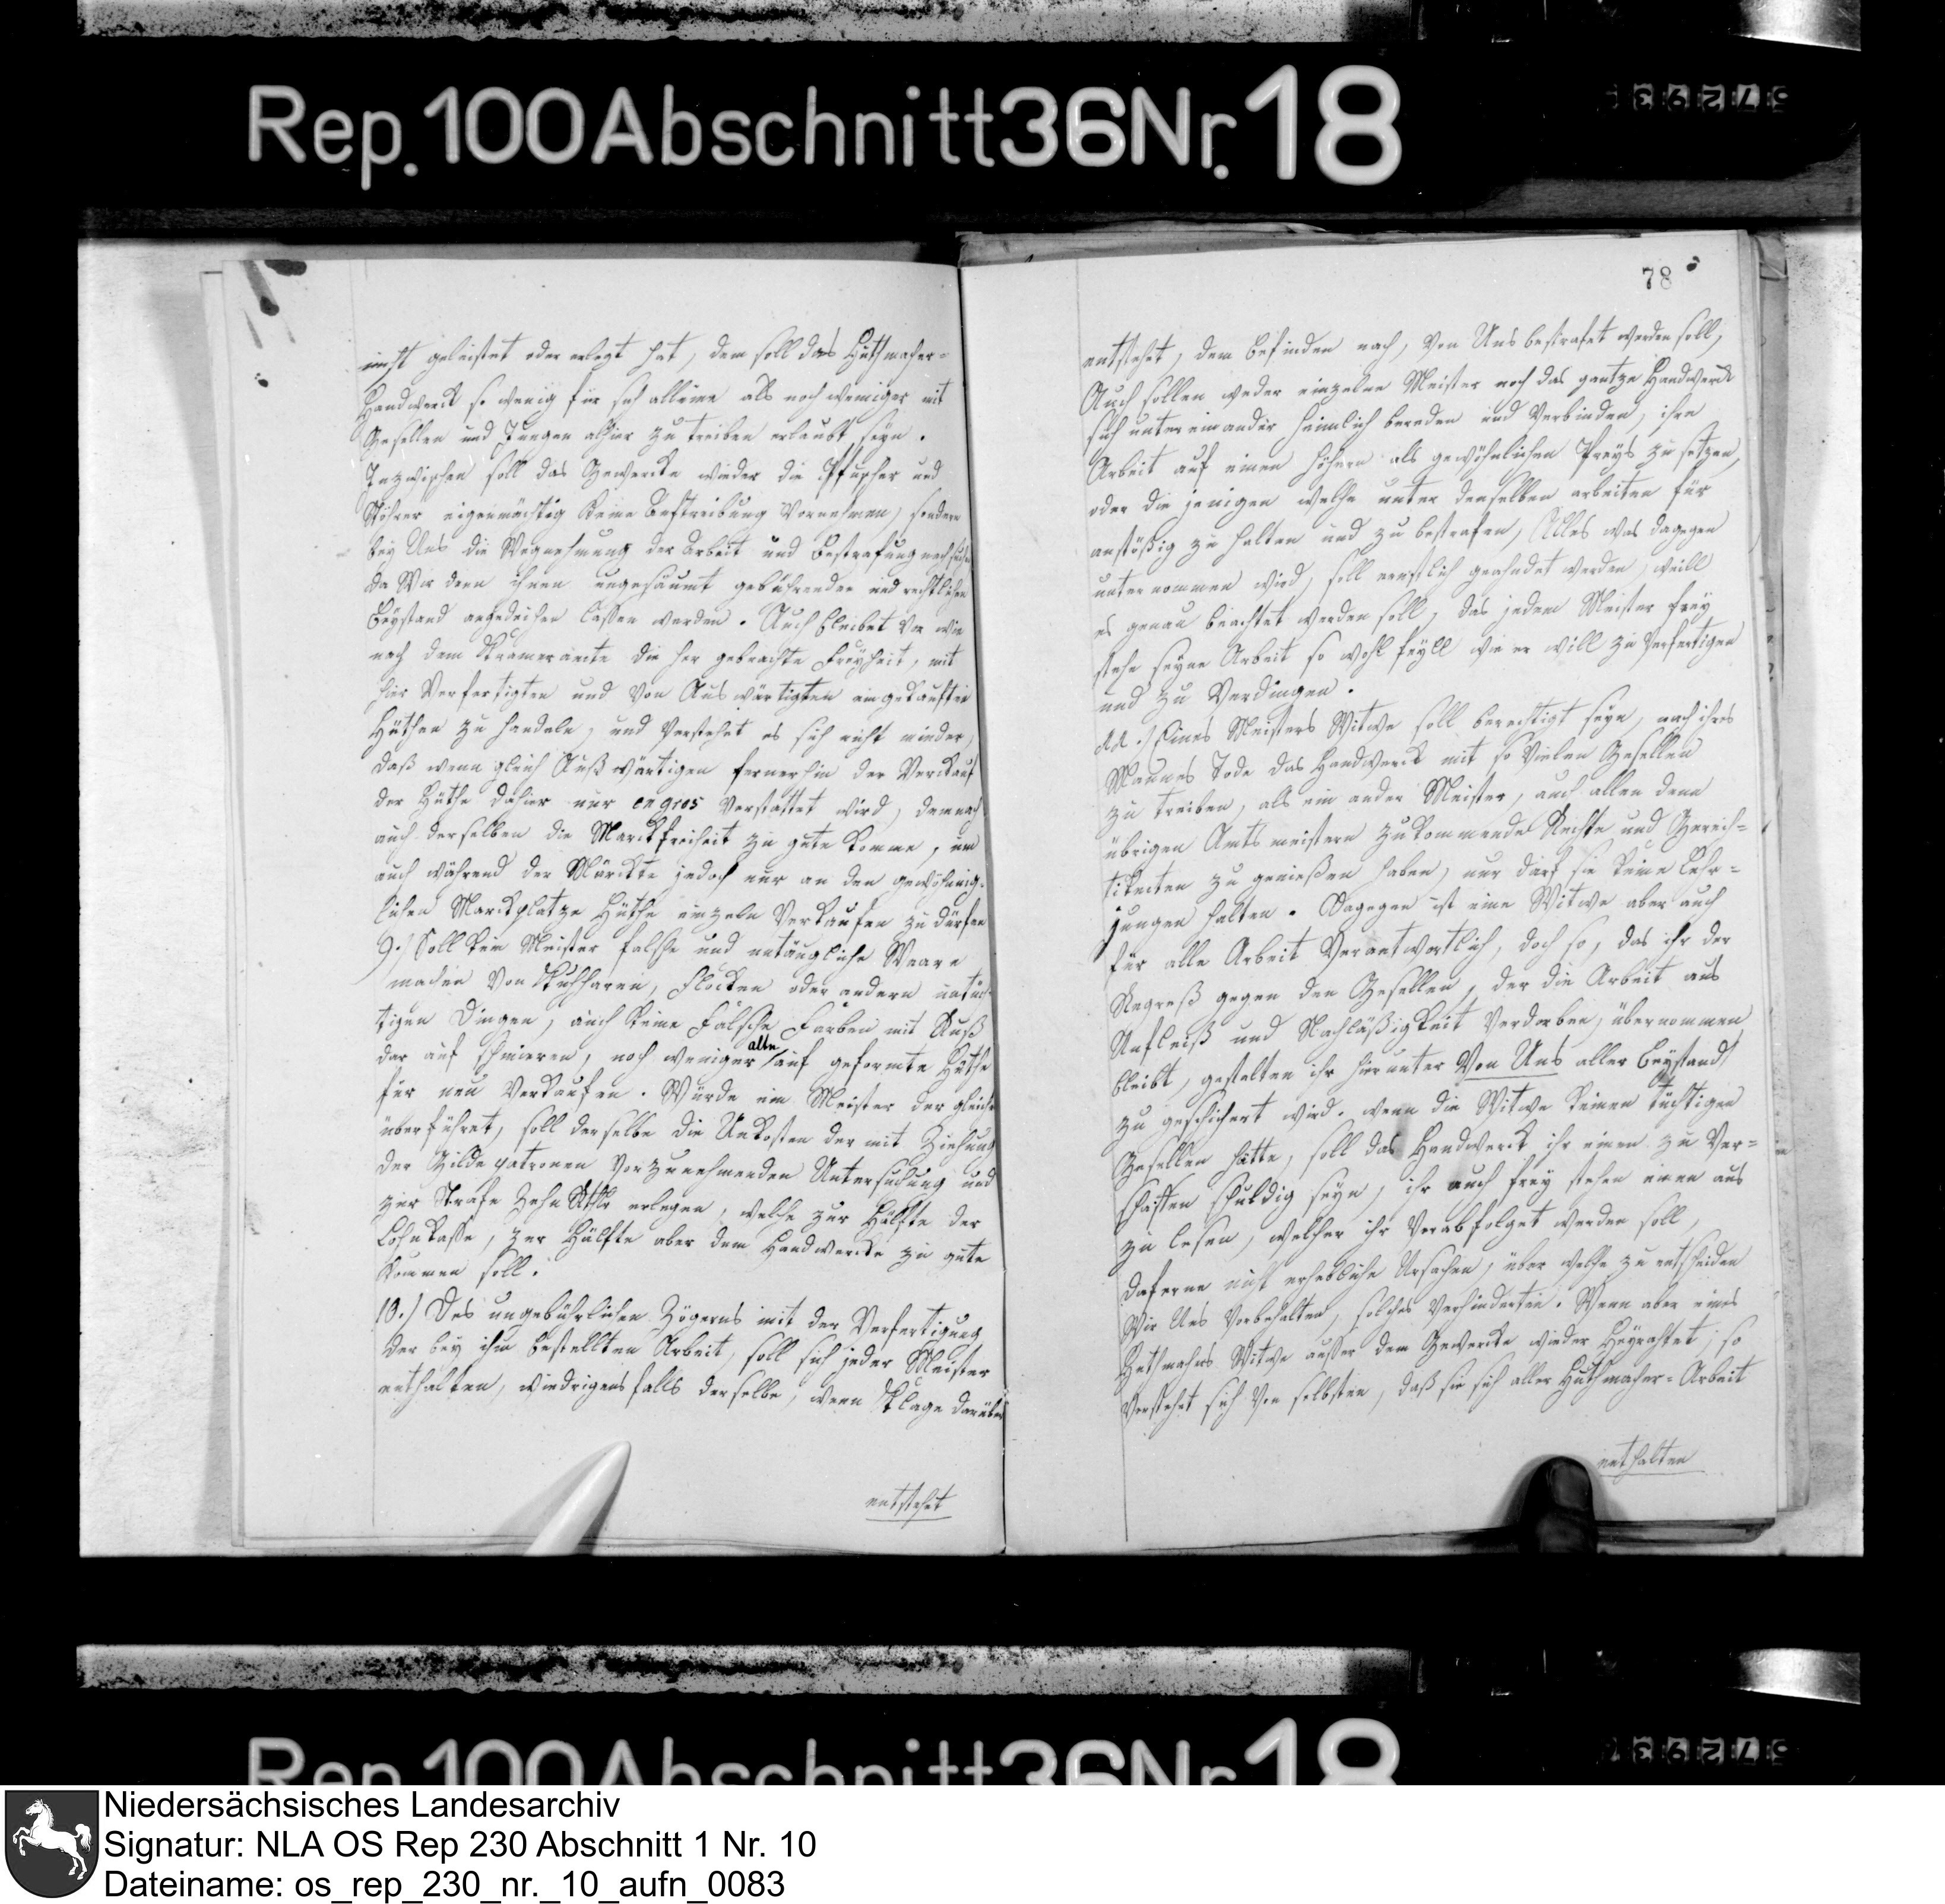 Rep. 100 Abschnitt 36 Nr. 18
nicht geleistet oder erlegt hat, dem soll das Huthmacher-
Handwerck so wenig für sich alleine als noch weniger mit
Gesellen und Jungen alhier zu treiben erlaubt seyn.
Inzwischen soll das Gewercke wieder die Pfuscher und
Stöhrer eigenmächtig keine Beystreibung vornehmen, sondern
bey Uns die Wegnehmung der Arbeit und Bestrafung nachsuchen
da Wir denn ihnen ungesäumt gebührenden und rechtlichen
Beystand angedeihen lassen werden. Auch bleibet vor wie
nach dem Krameramte die her gebrachte Freyheit, mit
hier Verfertigten und von Auswärtigten eingekauften
Hüthen zu handeln, und verstehet es sich nicht minder,
daß wenn gleich Außwärtigen fernerhin der Verkauf
der Hüthe dahier nur engros verstattet wird, dennoch
auch derselben die Marcktfreiheit zu gute komme, um
auch während der Märckte jedoch nur an den gewöhnig-
lichen Marcktplatze Hüthe einzeln Verkaufen zu dürfen
9.) Soll kein Meister falsche und untaugliche Waare
machen von Kuhharen, Flocken oder andern untüch-
tigen Dingen, auch keine falsche Farben mit Ruß
dar auf schmieren, noch weniger alte auf geformte Hüthe
für neu Verkaufen. Würde ein Meister der gleichen
überführet, soll derselbe die Unkosten der mit Ziehung
der Gildepatronen vorzunehmenden Untersuchung und
zur Strafe Zehn Rthlr erlegen, welche zur Hälfte der
Lohnkasse, zur Hälfte aber dem Handwercke zu gute
kommen soll.
10.) Des ungebührlichen Zögerns mit der Verfertigung
der bey ihm bestellten Arbeit, soll sich jeder Meister
enthalten, wiedrigensfalls derselbe, wenn Klage darüber
entstehet
78
entstehet, dem befinden nach, von Uns bestrafet werden soll,
Auch sollen weder einzelne Meister noch das gantze Handwerck
sich untereinander heimlich bereden und Verbinden, ihre
Arbeit auf einen höhern als gewöhnlichen Preys zu setzen,
oder die jenigen welche unter denselben arbeiten für
anstößig zu halten und zu bestrafen, Alles was dagegen
unternommen wird, soll ernstlich geahndet werden, weill
es genau beachtet werden soll, das jedem Meister frey
stehe seyne Arbeit so wohl feyll wie er will zu Verfertigen
und zu Verdingen.
11.) Eines Meisters Witwe soll berechtigt seyn, nach ihres
Mannes Tode das Handwerck mit so vielen Gesellen
zu treiben, als ein ander Meister, auch allen denn
übrigen Amtsmeistern zukommende Rechte und Gerech-
tikeiten zu genießen haben, nur darf sie keine Lehr-
jungen halten. Dagegen ist eine Witwe aber auch
für alle Arbeit Verantwortlich, doch so, das ihr der
Regreß gegen den Gesellen, der die Arbeit aus
Unfleiß und Nachläßigkeit Verdorben, übernommen
bleibt, gestalten ihr hierunter Von Uns aller Beystand
zu gesichert wird. wenn die Witwe keinen tüchtigen
Gesellen hätte, soll das Handwerck ihr einen zu Ver-
schaffen schuldig seyn, ihr auch frey stehen einen aus
zu lesen, welcher ihr Verabfolget werden soll,
daferne nicht erhebliche Ursachen, über welche zu entscheiden
Wir Uns Vorbehalten, solches Verhinderten. Wenn aber eines
Huthmachers Witwe ausser dem Gewercke wieder heyrathet, so
Verstehet sich von selbsten, daß sie sich aller Huthmacher-Arbeit
enthalten
Rep. 100 Abschnitt 36 Nr. 18
Niedersächsisches Landesarchiv
Signatur: NLA OS Rep 230 Abschnitt 1 Nr. 10
Dateiname: os_rep_230_nr._10_aufn_0083